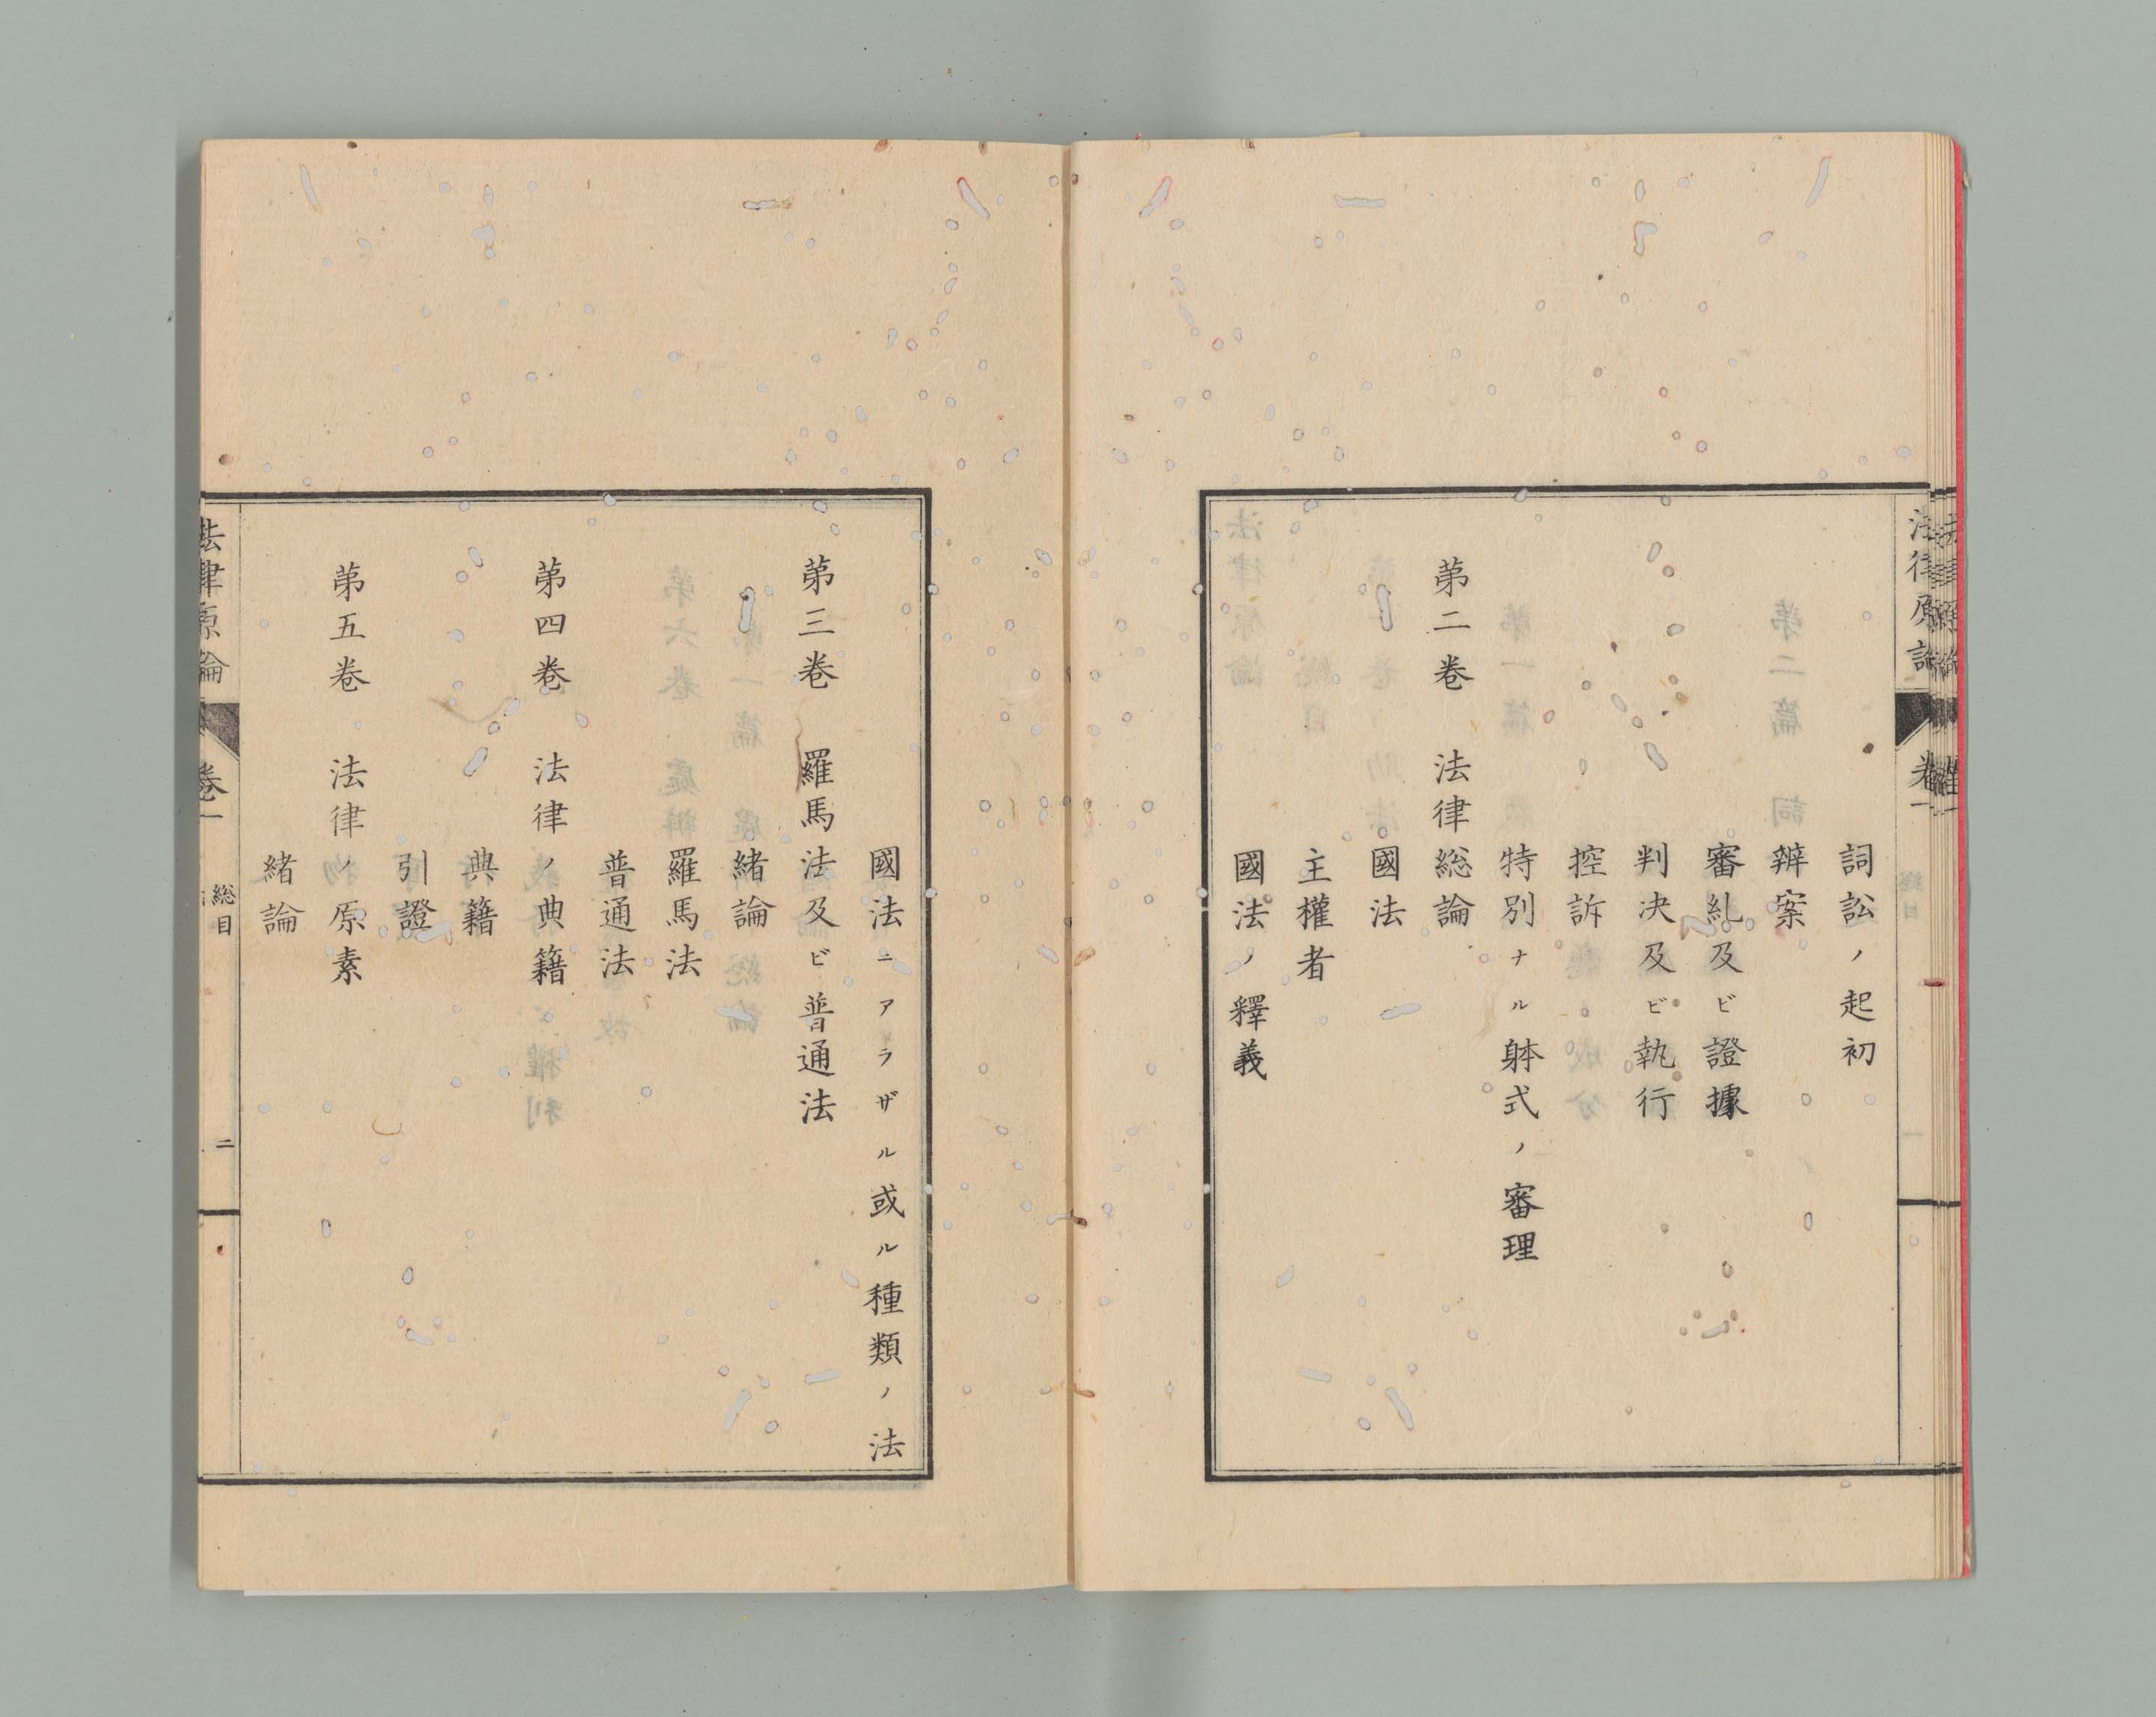 詞訟ノ起初
辨案
審糺及ビ證據
判决及ビ執行
控訴
特別ナル躰式ノ審理
第二卷 法律総論
國法
主權者
國法ノ釋義
國法ニアラザル或ル種類ノ法
第三卷 羅馬法及ビ普通法
緒論
羅馬法
普通法
第四卷 法律ノ典籍
典籍
引證
第五卷 法律ノ原素
緒論
法律原論 卷一 総目 二